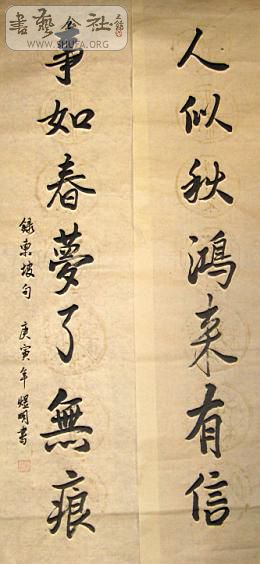 書藝公社
WWW.SHUFA.ORG
人似秋鴻来有信
事如春夢了無痕
録東坡句 庚寅年煜明書